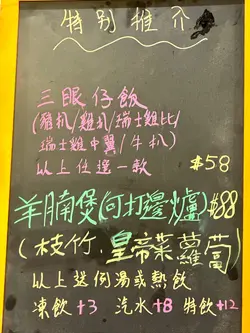 特别推介
三眼仔飯
(豬扒/雞扒/瑞士雞比/
瑞士雞中翼/牛扒)
以上任選一款 $58
羊腩煲(可打邊爐)$88
(枝竹,皇帝菜,蘿蔔)
以上送例湯或熱飲
凍飲+3 汽水+8 特飲+12